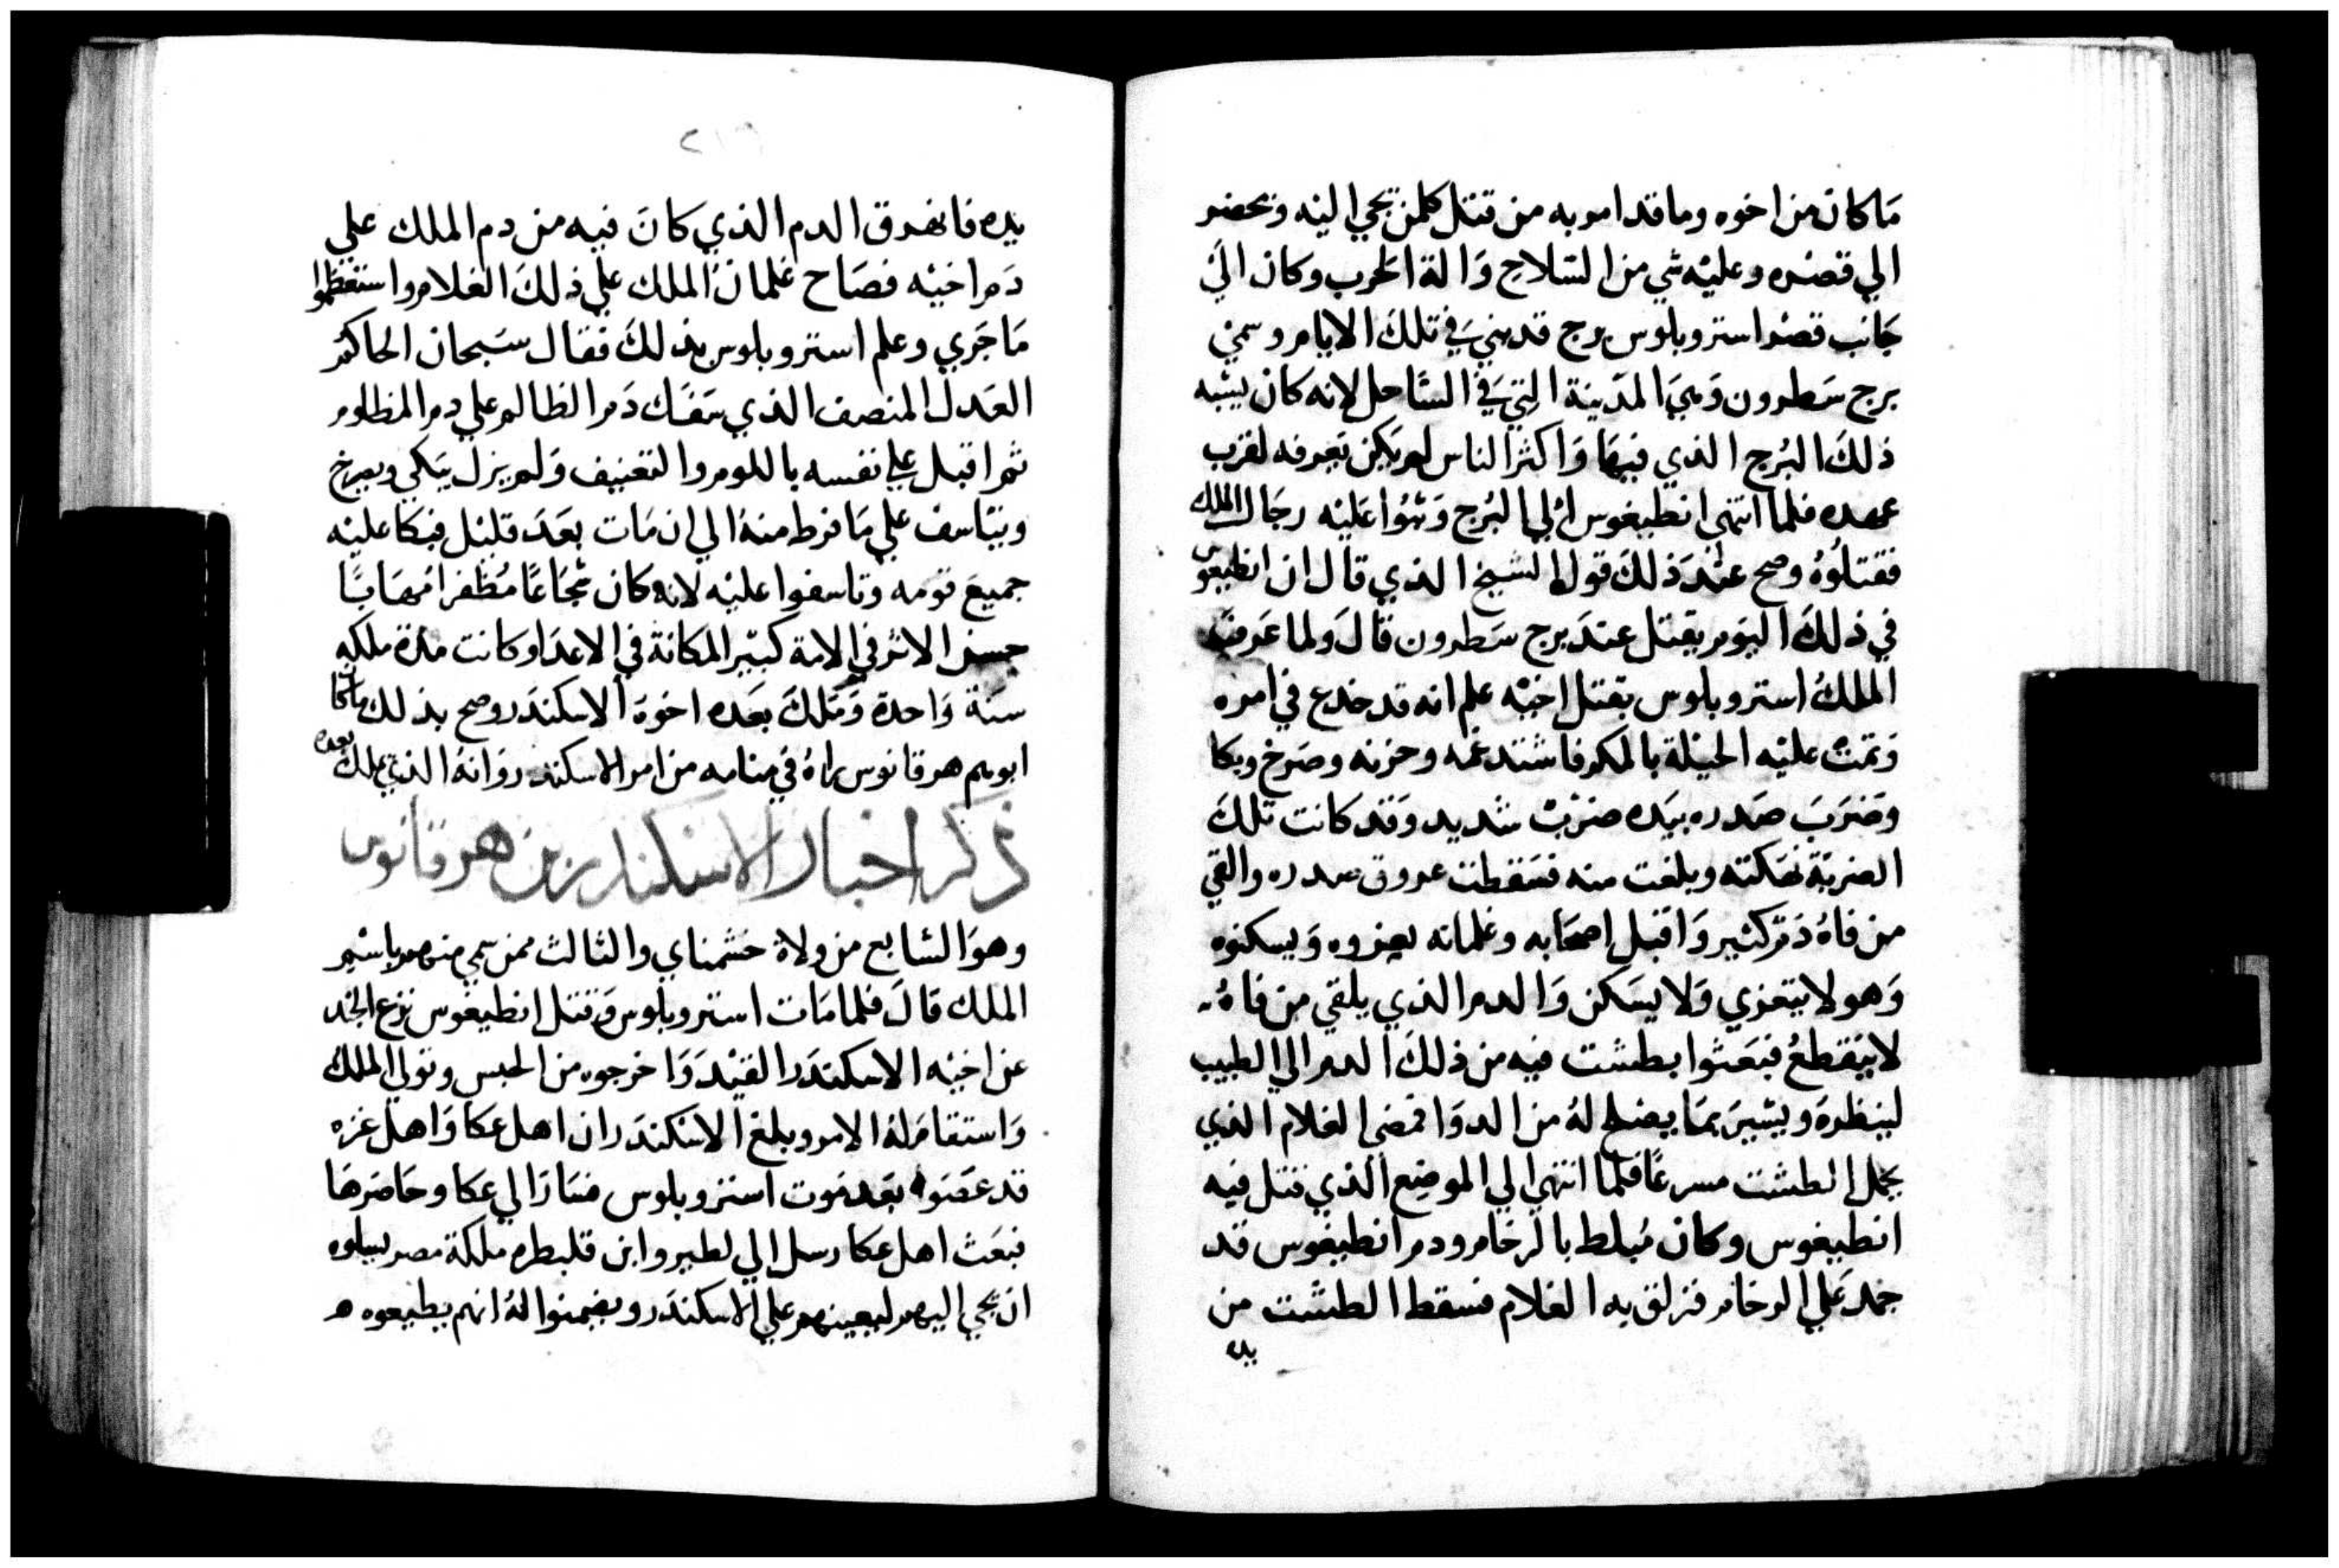 ما كان من اخوه وما قد امر به من قتل كلمن يجي اليه ويحضر
الي قصره وعليه شي من السلاح والة الحرب وكان الي
جانب قصر استروبلوس برج قد بني في تلك الايام وسمي
برج سطرون وهي المدينة التي في الساحل لانه كان يشبه
ذلك البرج الذي فيها واكثر الناس لم يكن يعرفه لقرب
عهده فلما انتهي انطيغوس الي البرج وثبوا عليه رجال الملك
فقتلوه وصح عند ذلك قول الشيخ الذي قال ان انطيغوس
في ذلك اليوم يقتل عند برج سطرون قال ولما عرف
الملك استروبلوس بقتل اخيه علم انه قد خدع في امره
وتمت عليه الحيلة بالمكر فاشتد غمه وحزنه وصرخ وبكا
وضرب صدره بيده ضرب شديد وقد كانت تلك
الضربة نهكته وبلغت منه فسقطت عروق صدره والقي
من فاه دم كثير واقبل اصحابه وغلمانه يعزوه ويسكنوه
وهو لا يتعزي ولا يسكن والدم الذي يلقي من فاه
لا ينقطع فبعثوا بطشت فيه من ذلك الدم الي الطبيب
لينظره ويشير بما يصلح له من الدوا فمضي الغلام الذي
يحمل الطشت مسرعًا فلما انتهي الي الموضع الذي قتل فيه
انطيغوس وكان مبلط بالرخام ودم انطيغوس قد
جمد علي الرخام فزلق به الغلام فسقط الطشت من
يده
٢١٦
يده فانهرق الدم الذي كان فيه من دم الملك علي
دم اخيه فصاح غلمان الملك علي ذلك الغلام واستعظموا
ما جري وعلم استروبلوس بذلك فقال سبحان الحاكم
العدل المنصف الذي سفك دم الظالم علي دم المظلوم
ثم اقبل علي نفسه باللوم والتعنيف ولم يزل يبكي ويصرخ
ويتاسف علي ما فرط منه الي ان مات بعد قليل فبكا عليه
جميع قومه وتاسفوا عليه لانه كان شجاعًا مظفرا مهابًا
حسن الاثر في الامة كبير المكانة في الاعدا وكانت مدة ملكه
سنة واحدة وملك بعده اخوه الاسكندر وصح بذلك ما كان
ابوهم هرقانوس راه في منامه من امر الاسكندر وانه الذي يملك بعده
ذكر اخبار الاسكندر بن هرقانوس
وهو السابع من ولاة حشمناي والثالث ممن سمي منهم باسم
الملك قال فلما مات استروبلوس وقتل انطيغوس نزع الجند
عن اخيه الاسكندر القيد واخرجوه من الحبس وتولي الملك
واستقام له الامر وبلغ الاسكندر ان اهل عكا واهل غزه
قد عصوا بعد موت استروبلوس فسار الي عكا وحاصرها
فبعث اهل عكا رسل الي لطيروا ابن قلبطره ملكة مصر يسلوه
ان يجي اليهم ليعينهم علي الاسكندر ويضمنوا له انهم يطيعوه ه